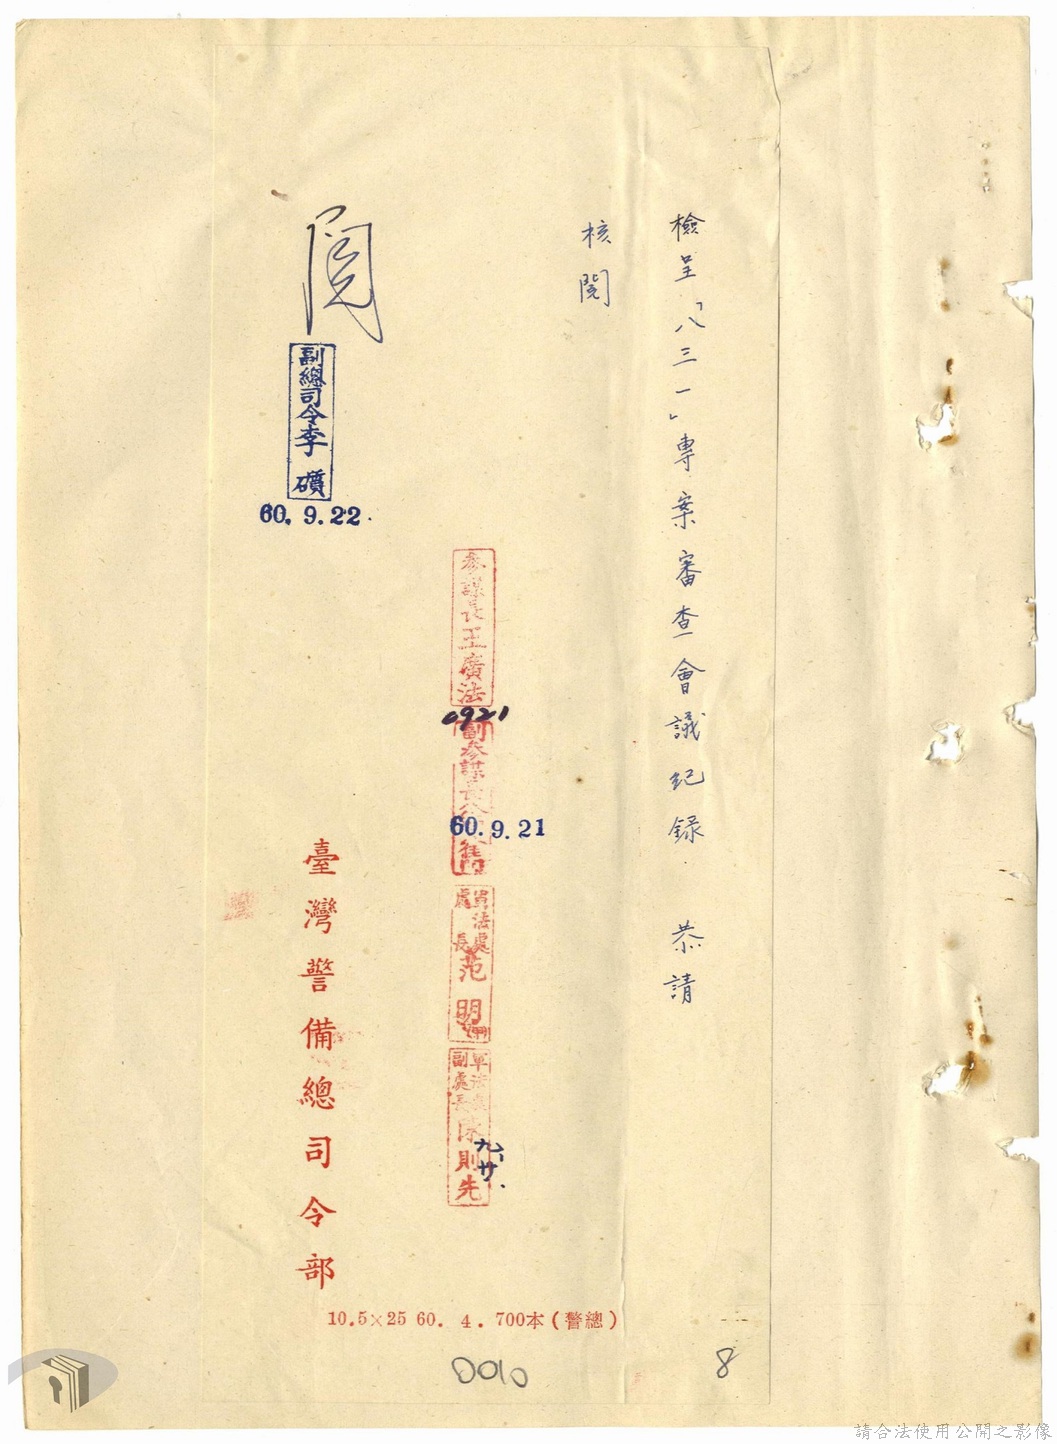 檢呈「八三一」專案審查會議紀錄．恭請
核閱
參謀長王廣法
0921
副參謀長
60.9.21
軍法處
處長
范明
軍法處
副處長
陳則先
九、廿．
閱
副總司令李礦
60.9.22.
臺灣警備總司令部
10.5×25 60. 4. 700本(警總)
0010
8
請合法使用公開之影像